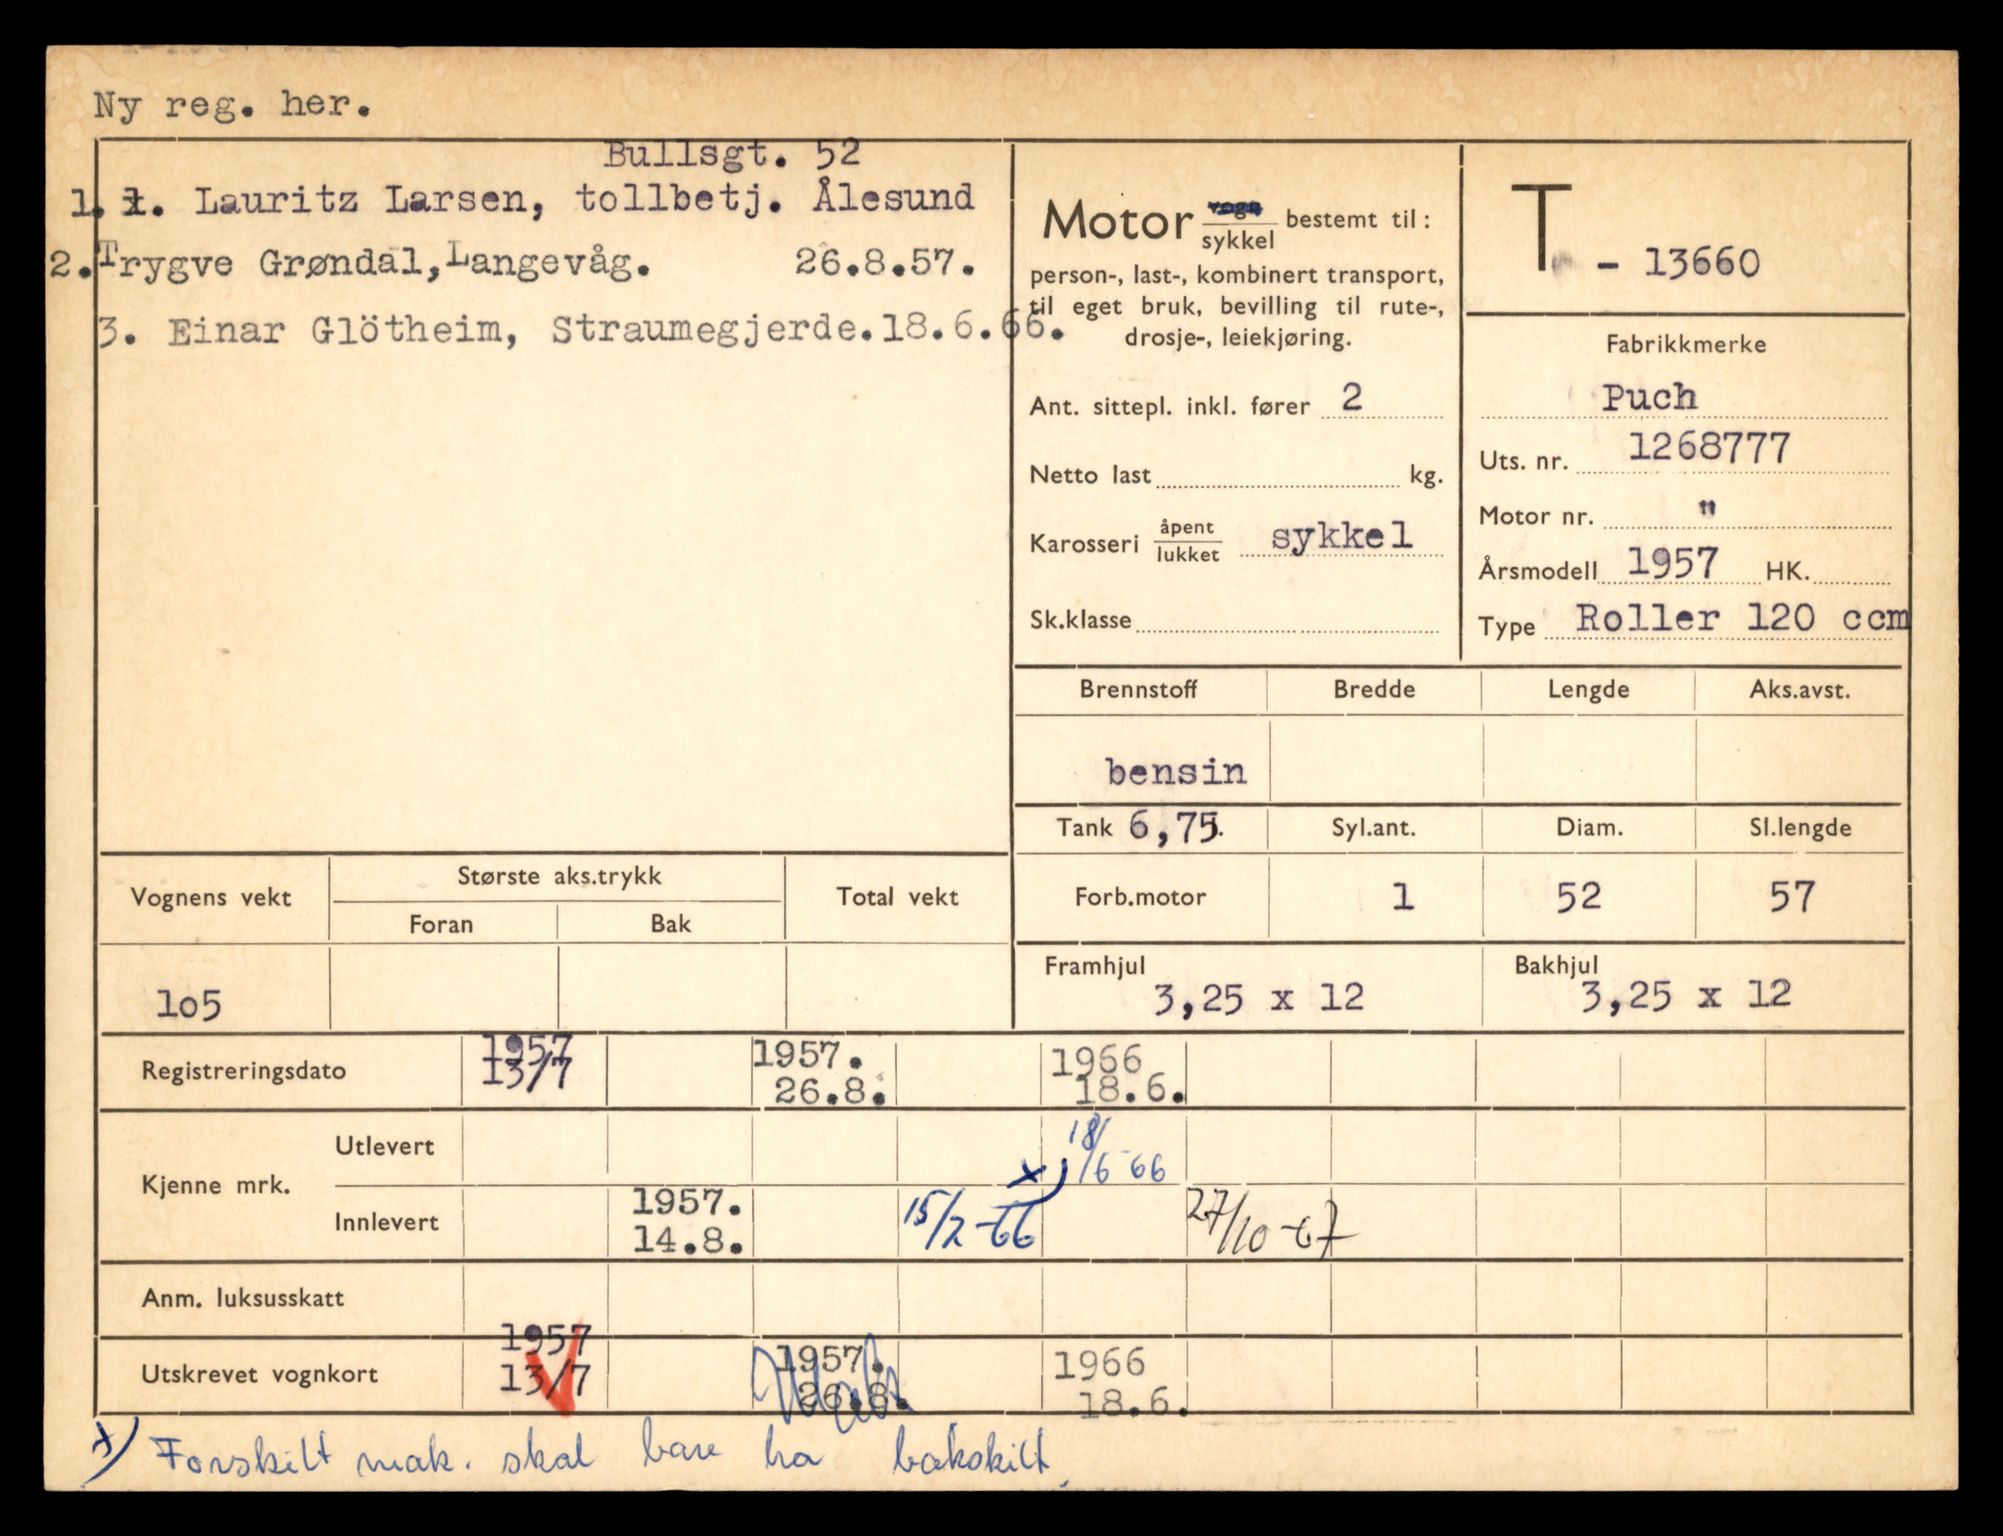 Ny reg. her.
Bullsgt. 52
1. 1. Lauritz Larsen, tollbetj. Ålesund
2. Trygve Grøndal, Langevåg. 26.8.57.
3. Einar Glötheim, Straumegjerde. 18.6.66.
Motor vogn/sykkel bestemt til:
person-, last-, kombinert transport,
til eget bruk, bevilling til rute-,
drosje-, leiekjøring.
Ant. sittepl. inkl. fører 2
Netto last kg.
Karosseri åpent/lukket sykkel
Sk.klasse
T - 13660
Fabrikkmerke
Puch
Uts. nr. 1268777
Motor nr. "
Årsmodell 1957 HK.
Type Roller 120 ccm
Brennstoff Bredde Lengde Aks.avst.
bensin
Tank 6,75 l. Syl.ant. Diam. Sl.lengde
Forb.motor 1 52 57
Framhjul Bakhjul
3,25 x 12 3,25 x 12
Vognens vekt Største aks.trykk Total vekt
Foran Bak
1o5
Registreringsdato 1957 13/7 1957. 26.8. 1966 18.6.
Kjenne mrk. Utlevert x) 18/6 66
Innlevert 1957. 14.8. 15/2-66 27/10-67
Anm. luksusskatt
Utskrevet vognkort 1957 13/7 1957. 26.8. 1966 18.6.
x) Forskilt mak. skal bare ha bakskilt.